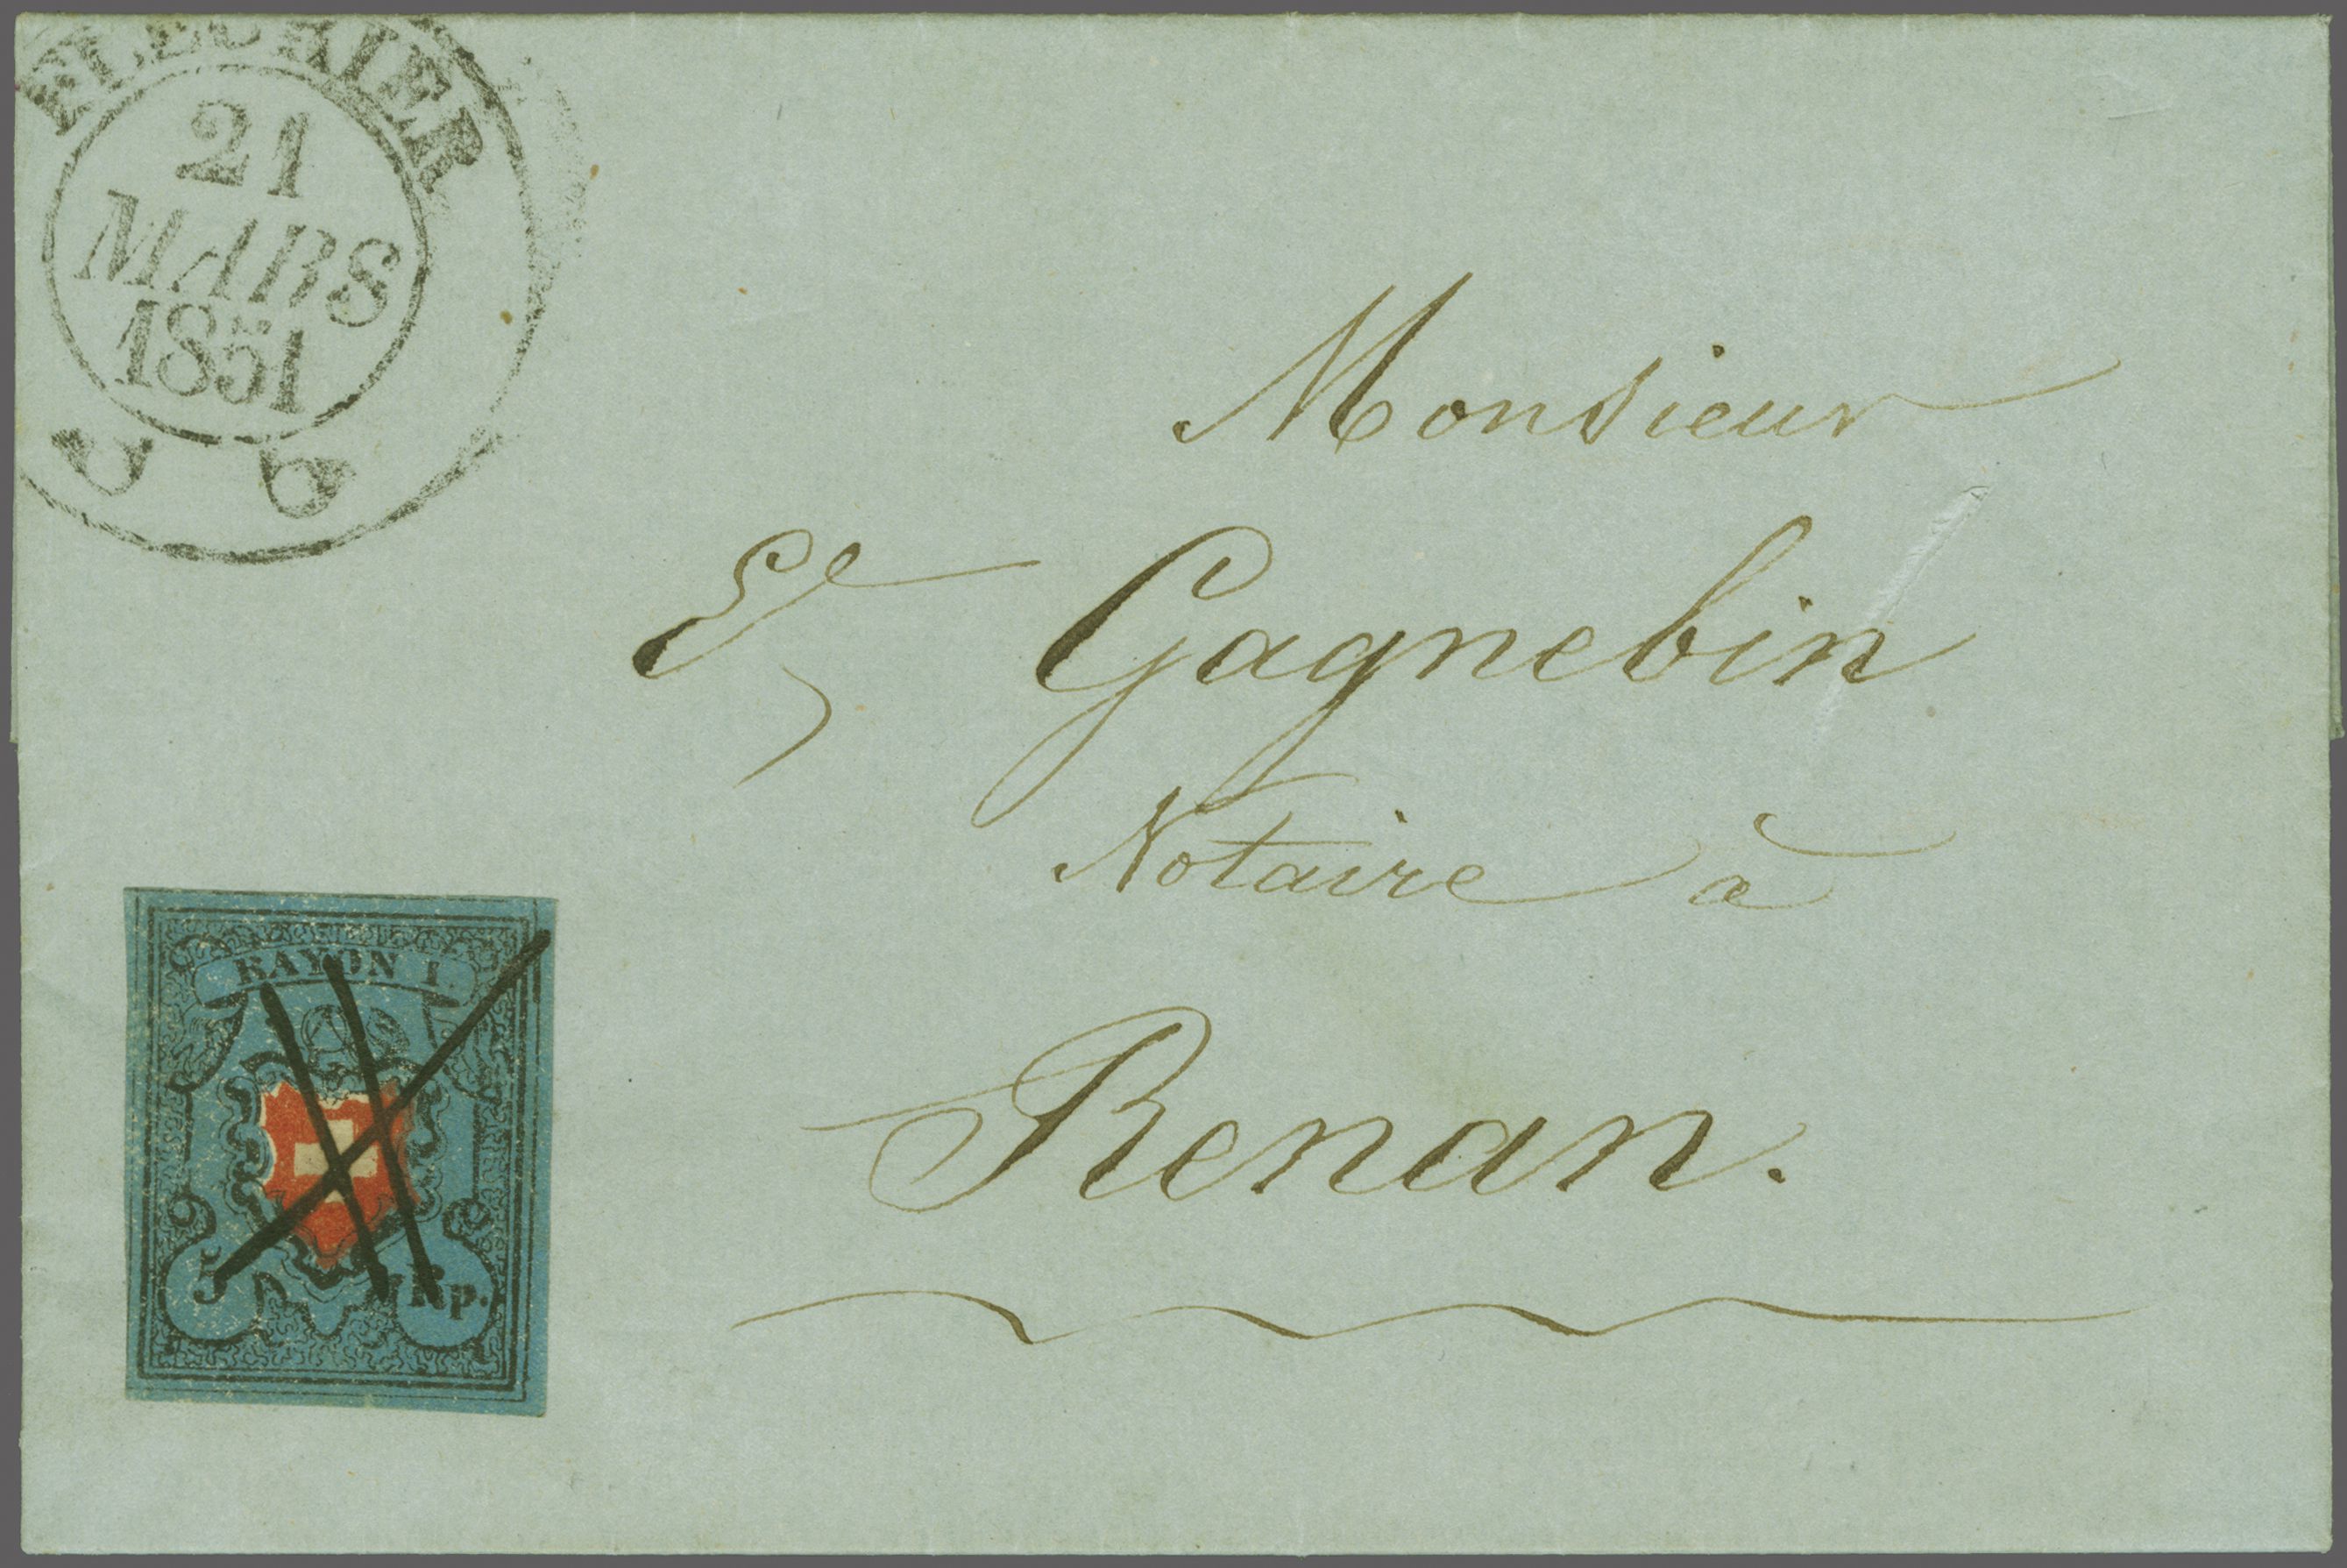 FLEURIER
21
MARS
1851
Monsieur
Gagnebin
Notaire à
Renan.
RAYON I.
5 Rp.